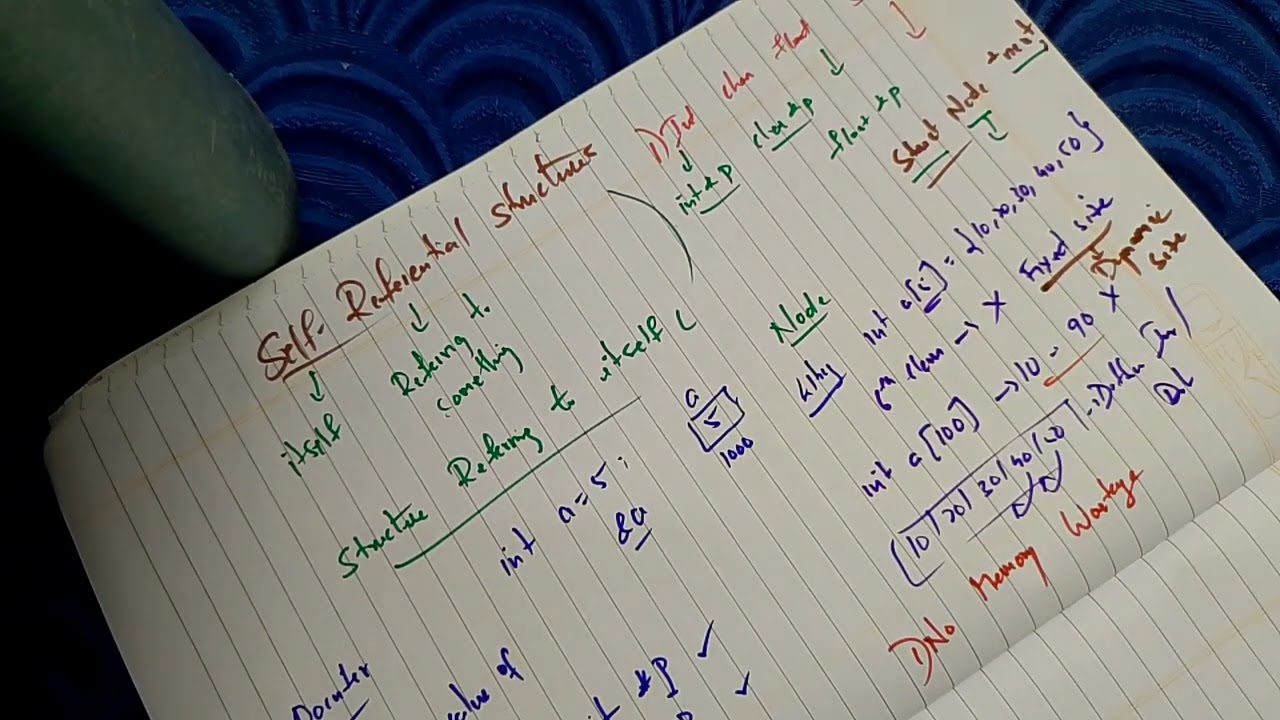 Self-Referential structures
itself
Refering to
something
Structure Refering to itself (
int a=5;
&a
a
5
1000
Pointer
value of
*P
1) Int char float
int *p
char *p
float *p
Struct Node *next;
Node
Why
int a[5] = {10,20,30,40,50}
6th elem → X Fixed size
Dynamic
size
int a[100] → 10 - 90 X
10|20|30|40|50
Memory Wastage
1) No